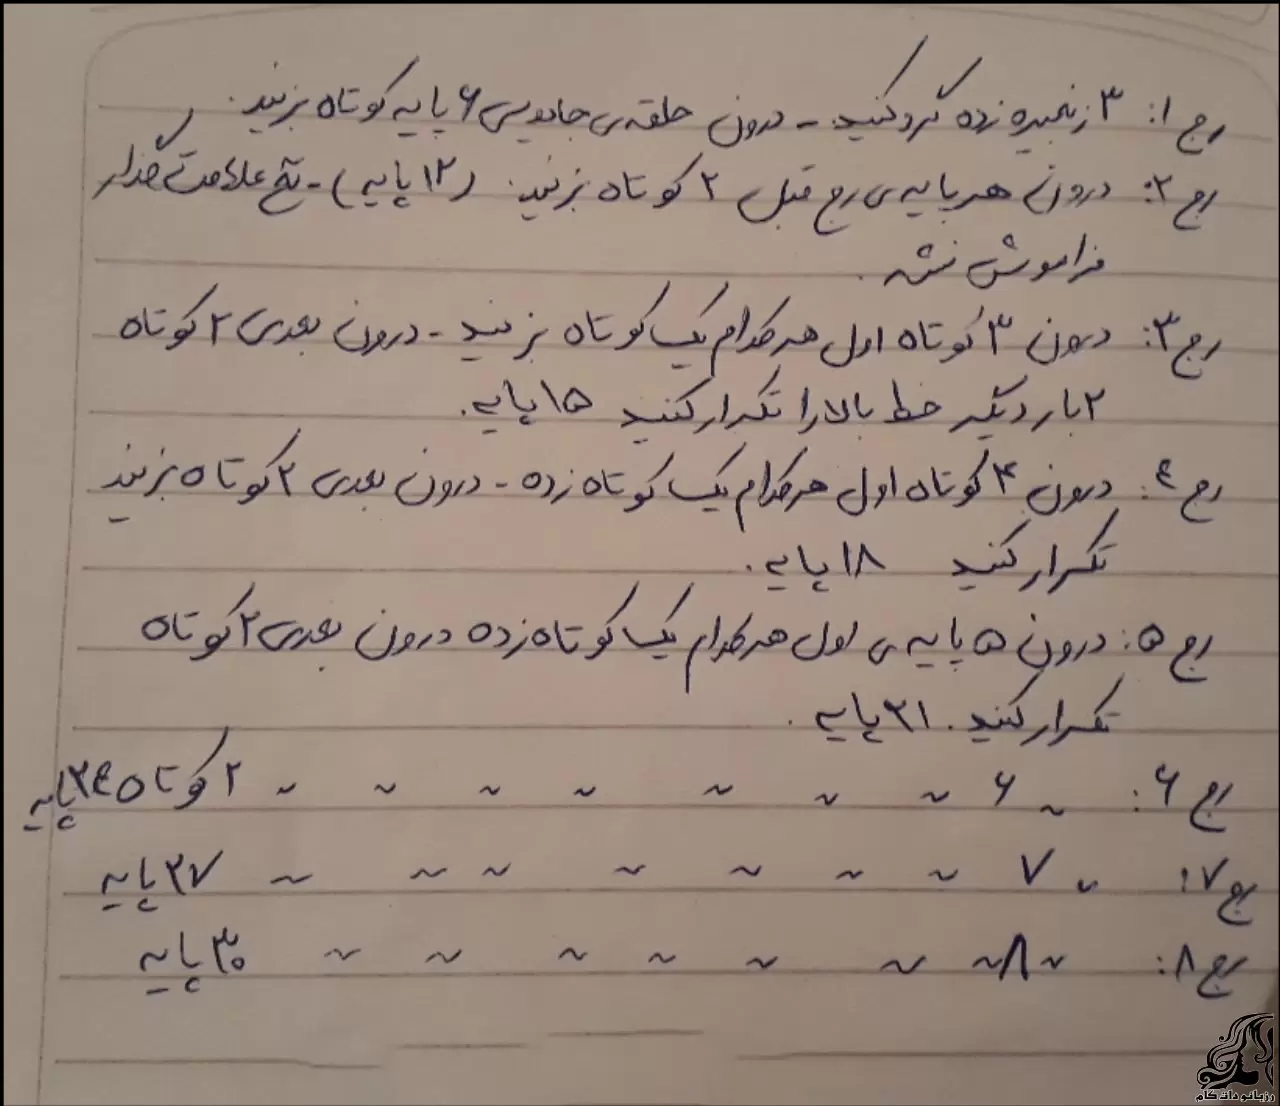 رج ۱: ۳ زنجیره زده گرد کنید - درون حلقه‌ی جادویی ۶ پایه کوتاه بزنید.
رج ۲: درون هر پایه‌ی رج قبل ۲ کوتاه بزنید. (۱۲ پایه) - نخ علامت گذار
فراموش نشه.
رج ۳: درون ۳ کوتاه اول هر کدام یک کوتاه بزنید - درون بعدی ۲ کوتاه
۲ بار دیگر خط بالا را تکرار کنید ۱۵ پایه.
رج ٤: درون ۴ کوتاه اول هر کدام یک کوتاه زده - درون بعدی ۲ کوتاه بزنید
تکرار کنید ۱۸ پایه.
رج ۵: درون ۵ پایه‌ی اول هر کدام یک کوتاه زده درون بعدی ۲ کوتاه
تکرار کنید. ۲۱ پایه.
رج ۶: ~ ۶ ~ ~ ~ ~ ~ ~ ~ ۲ کوتاه ۲٤ پایه
رج ۷: ~ ۷ ~ ~ ~ ~ ~ ~ ~ ۲۷ پایه
رج ۸: ~ ۸ ~ ~ ~ ~ ~ ~ ~ ۳۰ پایه
رزبانو دات کام